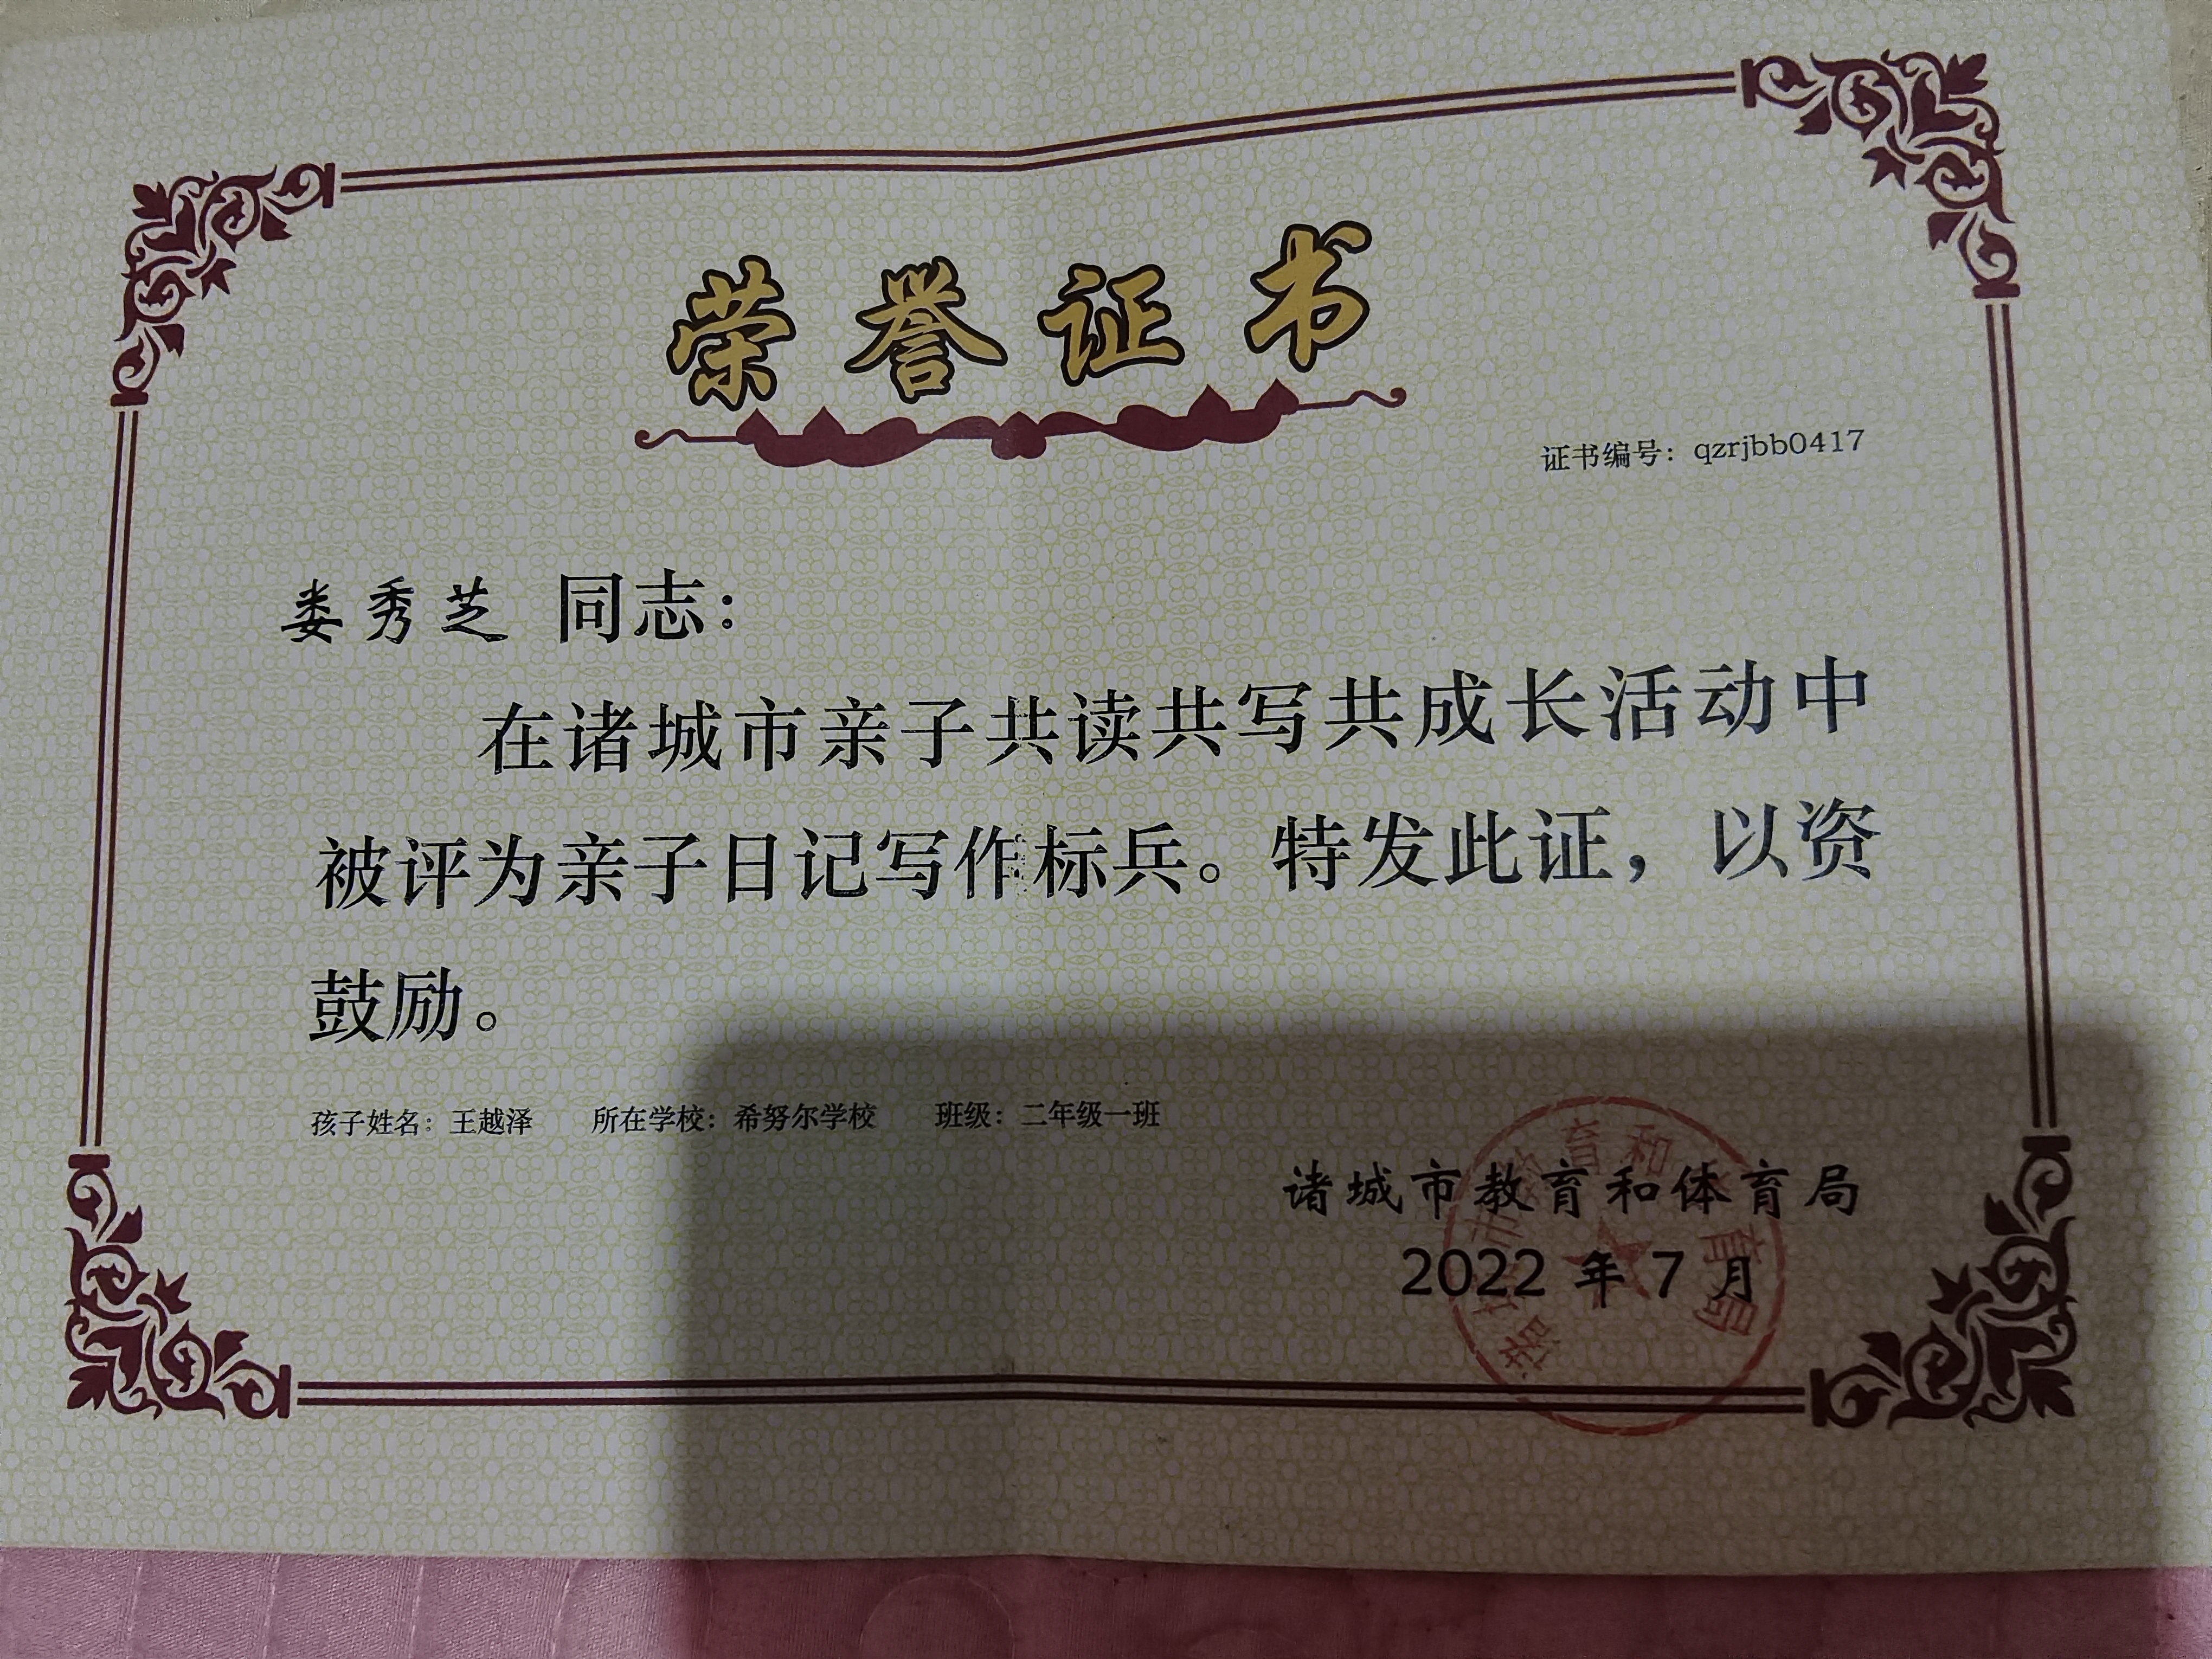 荣誉证书
证书编号：qzrjbb0417
娄秀芝 同志：
在诸城市亲子共读共写共成长活动中
被评为亲子日记写作标兵。特发此证，以资
鼓励。
孩子姓名：王越泽 所在学校：希努尔学校 班级：二年级一班
诸城市教育和体育局
2022 年 7 月
诸城市教育和体育局